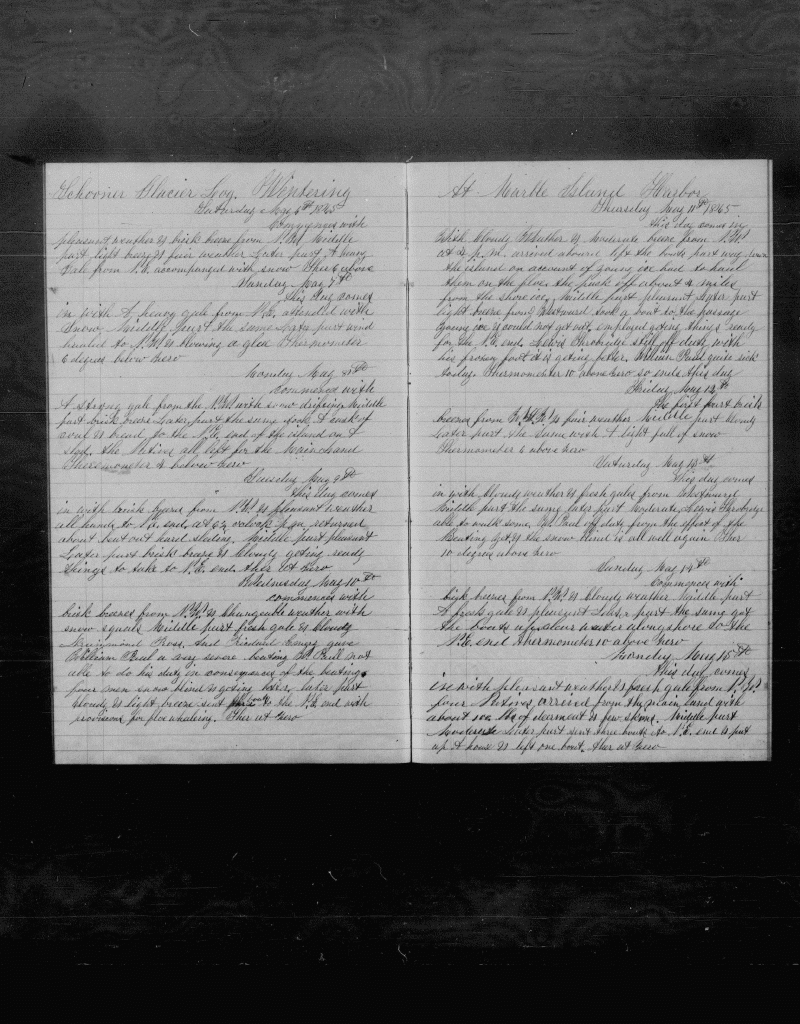 Schooner Glacier Log. Wintering
Saturday May 6th 1865
Commences with
pleasant weather & brisk breeze from N.W. Middle
part light breeze & fair weather Later part A heavy
Gale from N.E. accompanied with snow Ther 6 above
Sunday May 7th
This day comes
in with A heavy gale from N.E. attended with
Snow. Middle part the same Later part wind
hauled to N.W. & blowing a gale Thermometer
6 degrees below Zero
Monday May 8th
Commenced with
A strong gale from the N.W. with snow drifting Middle
part brisk breeze Later part the same took A cask of
coal & bread to the N.E. end of the island on A
sled. the Natives all left for the Main land
Thermometer 2 below Zero
Tuesday May 9th
This day comes
in with brisk breeze from N.W. & pleasant weather
all hands to N.E. end at 6½ oclock p.m. returned
about beat out hard sleding. Middle part pleasant
Later part brisk breeze & cloudy geting ready
things to take to N.E. end. ther at Zero
Wednesday May 10th
commences with
brisk breeze from N.W. & changeable weather with
snow squals Middle part fresh gale & cloudy
Ross. and Richard gave
William Paul a very severe beating W. Paul not
able to do his duty in consequences of the beating
four men snow blind & geting better, later part
cloudy & light breeze sent to the N.E. end with
provisions for floe whaleing. Ther at Zero
At Marble Island Harbor
Thursday May 11th 1865
This day comes in
with Cloudy Weather & Moderate breeze from N.W.
at 2. p. m. arrived aboard left the boats part way
the island on account of young ice had to haul
them on the floe. the pack off about 2 miles
from the shore ice, Middle part pleasant Later part
light breeze from Westward took a boat to the passage
young ice & could not get out, employed geting things ready
for the N.E. end. Lewis Throbridge still off duty with
his frozen foot it is geting better. William Paul quite sick
today. Thermometer 10 above Zero so ends this day
Friday May 12th
The first part brisk
breeze from N.W. & fair weather Middle part cloudy
Later part the same with A light fall of snow
Thermometer 6 above Zero
Saturday May 13th
This day comes
in with cloudy weather & fresh gales from Westward
Middle part the same later part Moderate, Lewis Throbridge
able to walk some, Wm Paul off duty from the effect of the
Beating yet, & the snow blind is all well again Ther
10 degrees above Zero
Sunday May 14th
Commences with
brisk breeze from N.W. & cloudy weather Middle part
A fresh gale & pleasant Later part the same got
the boats up clear water alongshore to the
N.E. end thermometer 10 above Zero
Monday May 15th
This day comes
in with pleasant weather & fresh gale from N.W.
four Natives arrived from the main land with
about 100 lbs of dearmeat & few skins. Middle part
Moderate Later part sent three boats to N.E. end & put
up A house & left one boat. ther at Zero